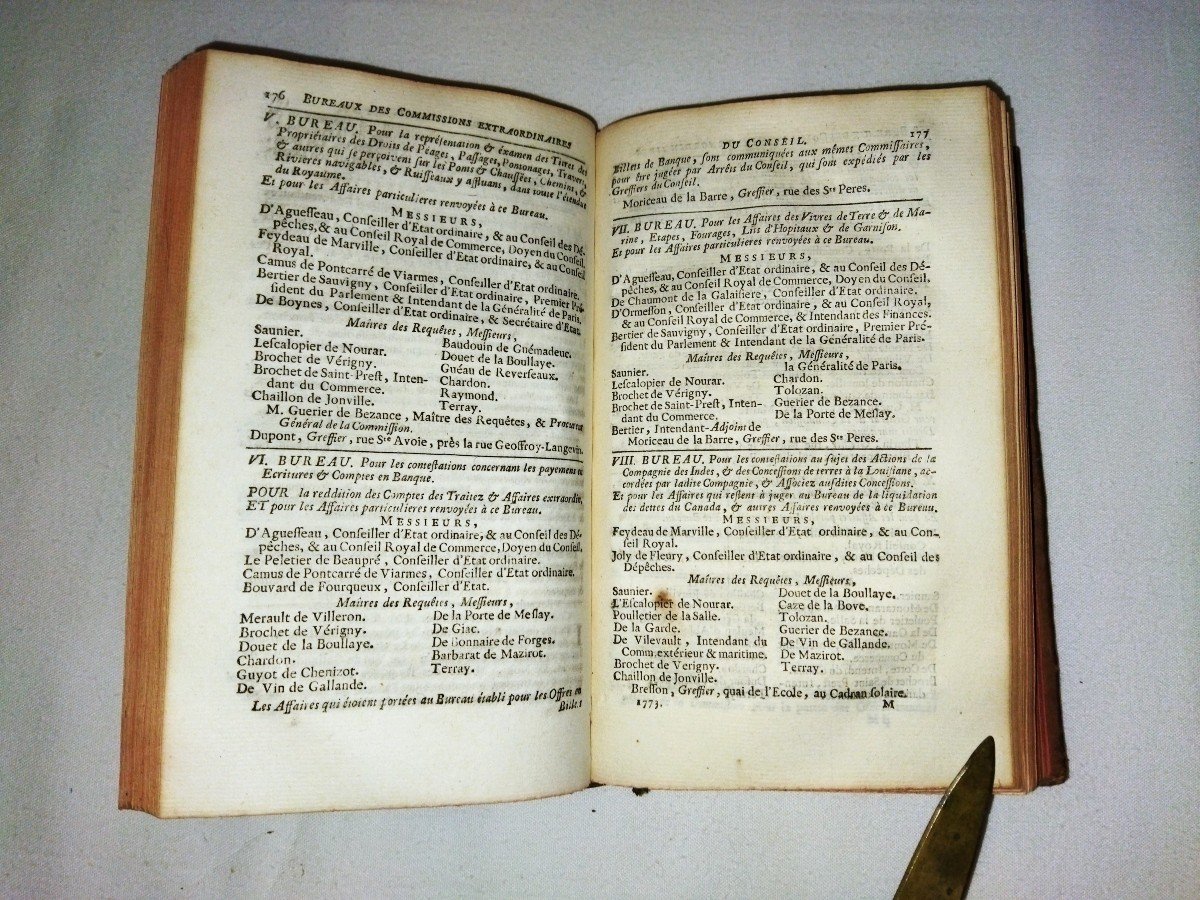 176 BUREAUX DES COMMISSIONS EXTRAORDINAIRES
V. BUREAU. Pour la représentation & éxamen des Titres des
Propriétaires des Droits de Péages, Passages, Pontonages, Travers,
& autres qui se perçoivent sur les Ponts & Chaussées, Chemins, &
Rivieres navigables, & Ruisseaux y affluans, dans toute l'étendue
du Royaume.
Et pour les Affaires particulieres renvoyées à ce Bureau.
MESSIEURS,
D'Aguesseau, Conseiller d'Etat ordinaire, & au Conseil des Dé-
pêches, & au Conseil Royal de Commerce, Doyen du Conseil.
Feydeau de Marville, Conseiller d'Etat ordinaire, & au Conseil
Royal.
Camus de Pontcarré de Viarmes, Conseiller d'Etat ordinaire.
Bertier de Sauvigny, Conseiller d'Etat ordinaire, Premier Pré-
sident du Parlement & Intendant de la Généralité de Paris.
De Boynes, Conseiller d'Etat ordinaire, & Secrétaire d'Etat.
Maîtres des Requêtes, Messieurs,
Saunier. Baudouin de Guémadeuc.
Lescalopier de Nourar. Douet de la Boullaye.
Brochet de Vérigny. Guéau de Reverseaux.
Brochet de Saint-Prest, Inten- Chardon.
dant du Commerce. Raymond.
Chaillon de Jonville. Terray.
M. Guerier de Bezance, Maître des Requêtes, & Procureur
Général de la Commission.
Dupont, Greffier, rue Ste Avoie, près la rue Geoffroy-Langevin.
VI. BUREAU. Pour les contestations concernant les payemens en
Ecritures & Comptes en Banque.
POUR la reddition des Comptes des Traitez & Affaires extraordin.
ET pour les Affaires particulieres renvoyées à ce Bureau.
MESSIEURS,
D'Aguesseau, Conseiller d'Etat ordinaire, & au Conseil des Dé-
pêches, & au Conseil Royal de Commerce, Doyen du Conseil.
Le Peletier de Beaupré, Conseiller d'Etat ordinaire.
Camus de Pontcarré de Viarmes, Conseiller d'Etat ordinaire.
Bouvard de Fourqueux, Conseiller d'Etat.
Maîtres des Requêtes, Messieurs,
Merault de Villeron. De la Porte de Meslay.
Brochet de Vérigny. De Giac.
Douet de la Boullaye. De Bonnaire de Forges.
Chardon. Barbarat de Mazirot.
Guyot de Chenizot. Terray.
De Vin de Gallande.
Les Affaires qui étoient portées au Bureau établi pour les Offres en
Billets
DU CONSEIL. 177
Billets de Banque, sont communiquées aux mêmes Commissaires,
pour être jugées par Arrêts du Conseil, qui sont expédiés par les
Greffiers du Conseil.
Moriceau de la Barre, Greffier, rue des Sts Peres.
VII. BUREAU. Pour les Affaires des Vivres de Terre & de Ma-
rine, Etapes, Fourages, Lits d'Hopitaux & de Garnison.
Et pour les Affaires particulieres renvoyées à ce Bureau.
MESSIEURS,
D'Aguesseau, Conseiller d'Etat ordinaire, & au Conseil des Dé-
pêches, & au Conseil Royal de Commerce, Doyen du Conseil.
De Chaumont de la Galaisiere, Conseiller d'Etat ordinaire.
D'Ormesson, Conseiller d'Etat ordinaire, & au Conseil Royal,
& au Conseil Royal de Commerce, & Intendant des Finances.
Bertier de Sauvigny, Conseiller d'Etat ordinaire, Premier Pré-
sident du Parlement & Intendant de la Généralité de Paris.
Maîtres des Requêtes, Messieurs,
Saunier. la Généralité de Paris.
Lescalopier de Nourar. Chardon.
Brochet de Vérigny. Tolozan.
Brochet de Saint-Prest, Inten- Guerier de Bezance.
dant du Commerce. De la Porte de Meslay.
Bertier, Intendant-Adjoint de
Moriceau de la Barre, Greffier, rue des Sts Peres.
VIII. BUREAU. Pour les contestations au sujet des Actions de la
Compagnie des Indes, & des Concessions de terres à la Louisiane, ac-
cordées par ladite Compagnie, & Associez ausdites Concessions.
Et pour les Affaires qui restent à juger au Bureau de la liquidation
des dettes du Canada, & autres Affaires renvoyées à ce Bureau.
MESSIEURS,
Feydeau de Marville, Conseiller d'Etat ordinaire, & au Con-
seil Royal.
Joly de Fleury, Conseiller d'Etat ordinaire, & au Conseil des
Dépêches.
Maîtres des Requêtes, Messieurs,
Saunier. Douet de la Boullaye.
L'Escalopier de Nourar. Caze de la Bove.
Poulletier de la Salle. Tolozan.
De la Garde. Guerier de Bezance.
De Vilevault, Intendant du De Vin de Gallande.
Comm. extérieur & maritime. De Mazirot.
Brochet de Verigny. Terray.
Chaillon de Jonville.
Bresson, Greffier, quai de l'Ecole, au Cadran solaire.
1773. M